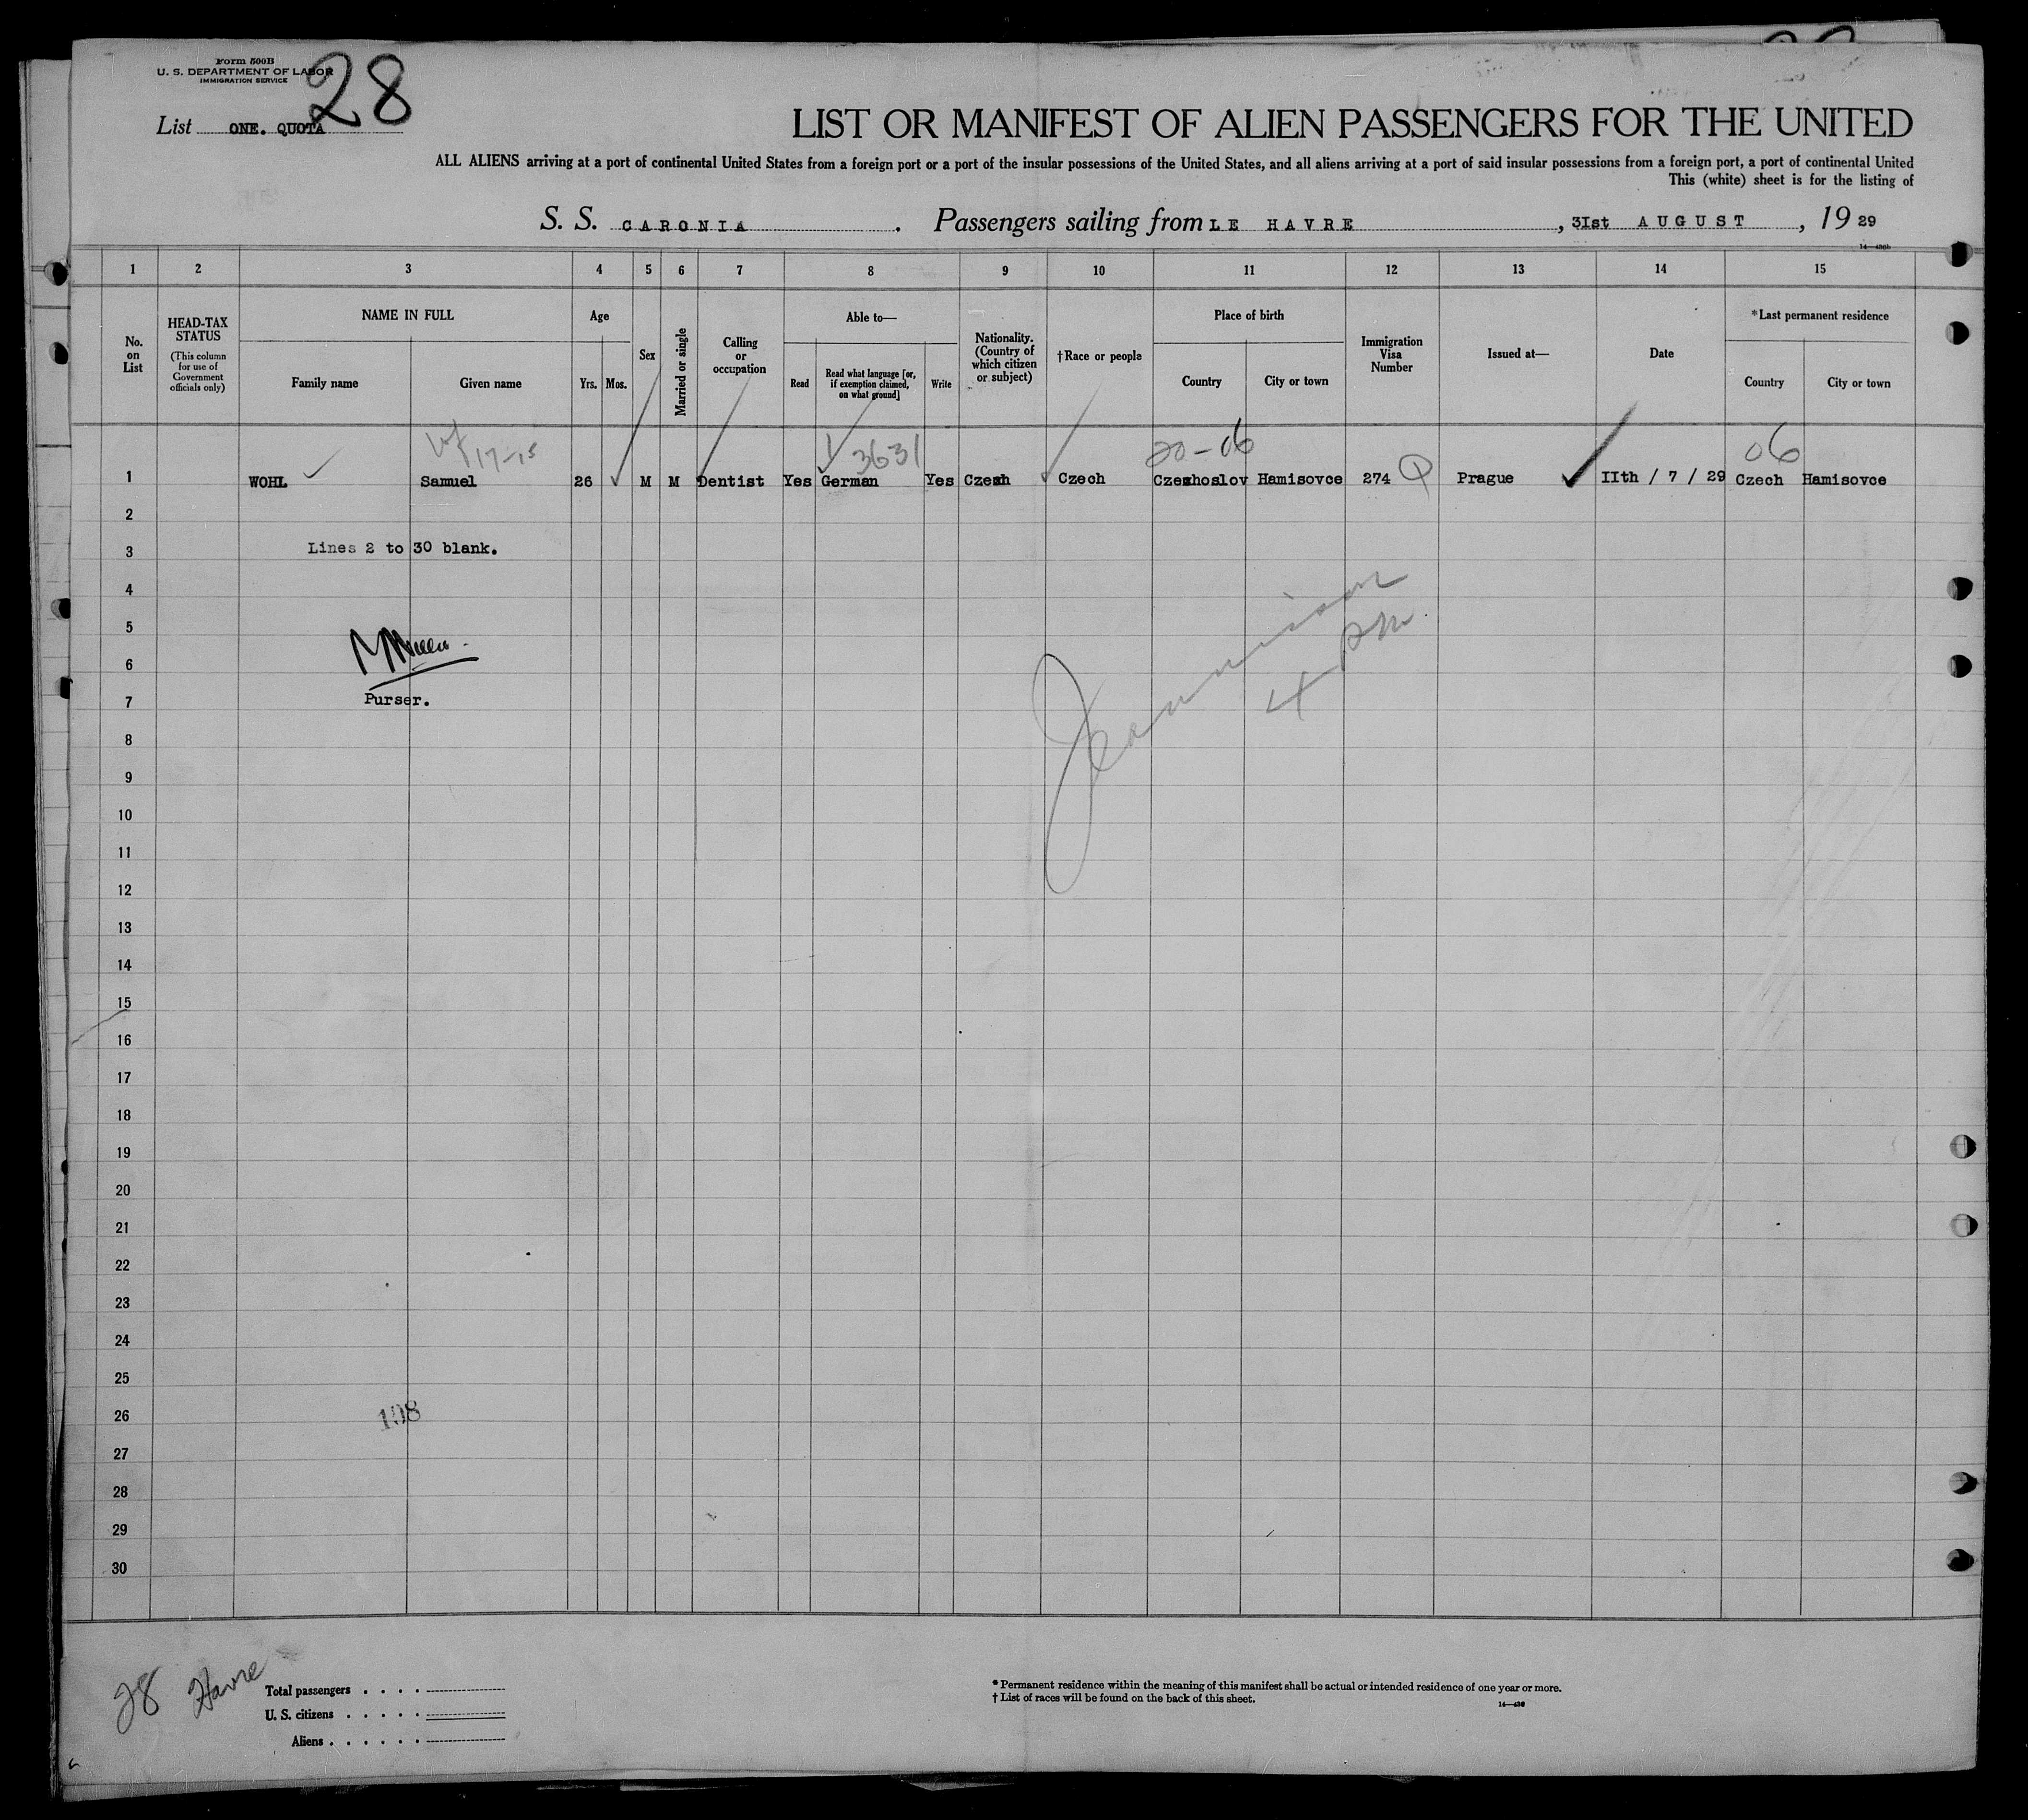 Form 500B
U. S. DEPARTMENT OF LABOR
IMMIGRATION SERVICE
28
List ONE. QUOTA
LIST OR MANIFEST OF ALIEN PASSENGERS FOR THE UNITED
ALL ALIENS arriving at a port of continental United States from a foreign port or a port of the insular possessions of the United States, and all aliens arriving at a port of said insular possessions from a foreign port, a port of continental United
This (white) sheet is for the listing of
S. S. CARONIA. Passengers sailing from LE HAVRE, 31st AUGUST, 1929
1 2 3 4 5 6 7 8 9 10 11 12 13 14 15
No. on List
HEAD-TAX STATUS
(This column for use of Government officials only)
NAME IN FULL
Family name Given name
Age
Yrs. Mos.
Sex
Married or single
Calling or occupation
Able to—
Read
Read what language [or, if exemption claimed, on what ground]
Write
Nationality. (Country of which citizen or subject)
†Race or people
Place of birth
Country City or town
Immigration Visa Number
Issued at—
Date
*Last permanent residence
Country City or town
17-15 3631 20-06 06
1 WOHL Samuel 26 M M Dentist Yes German Yes Czech Czech Czeshoslov Hamisovce 274 Q Prague IIth / 7 / 29 Czech Hamisovce
2
3 Lines 2 to 30 blank.
4
5
6
7 Purser.
4 PM
8
9
10
11
12
13
14
15
16
17
18
19
20
21
22
23
24
25
26 198
27
28
29
30
28 Havre
Total passengers . . . .
U. S. citizens . . . . .
Aliens . . . . . .
* Permanent residence within the meaning of this manifest shall be actual or intended residence of one year or more.
† List of races will be found on the back of this sheet.